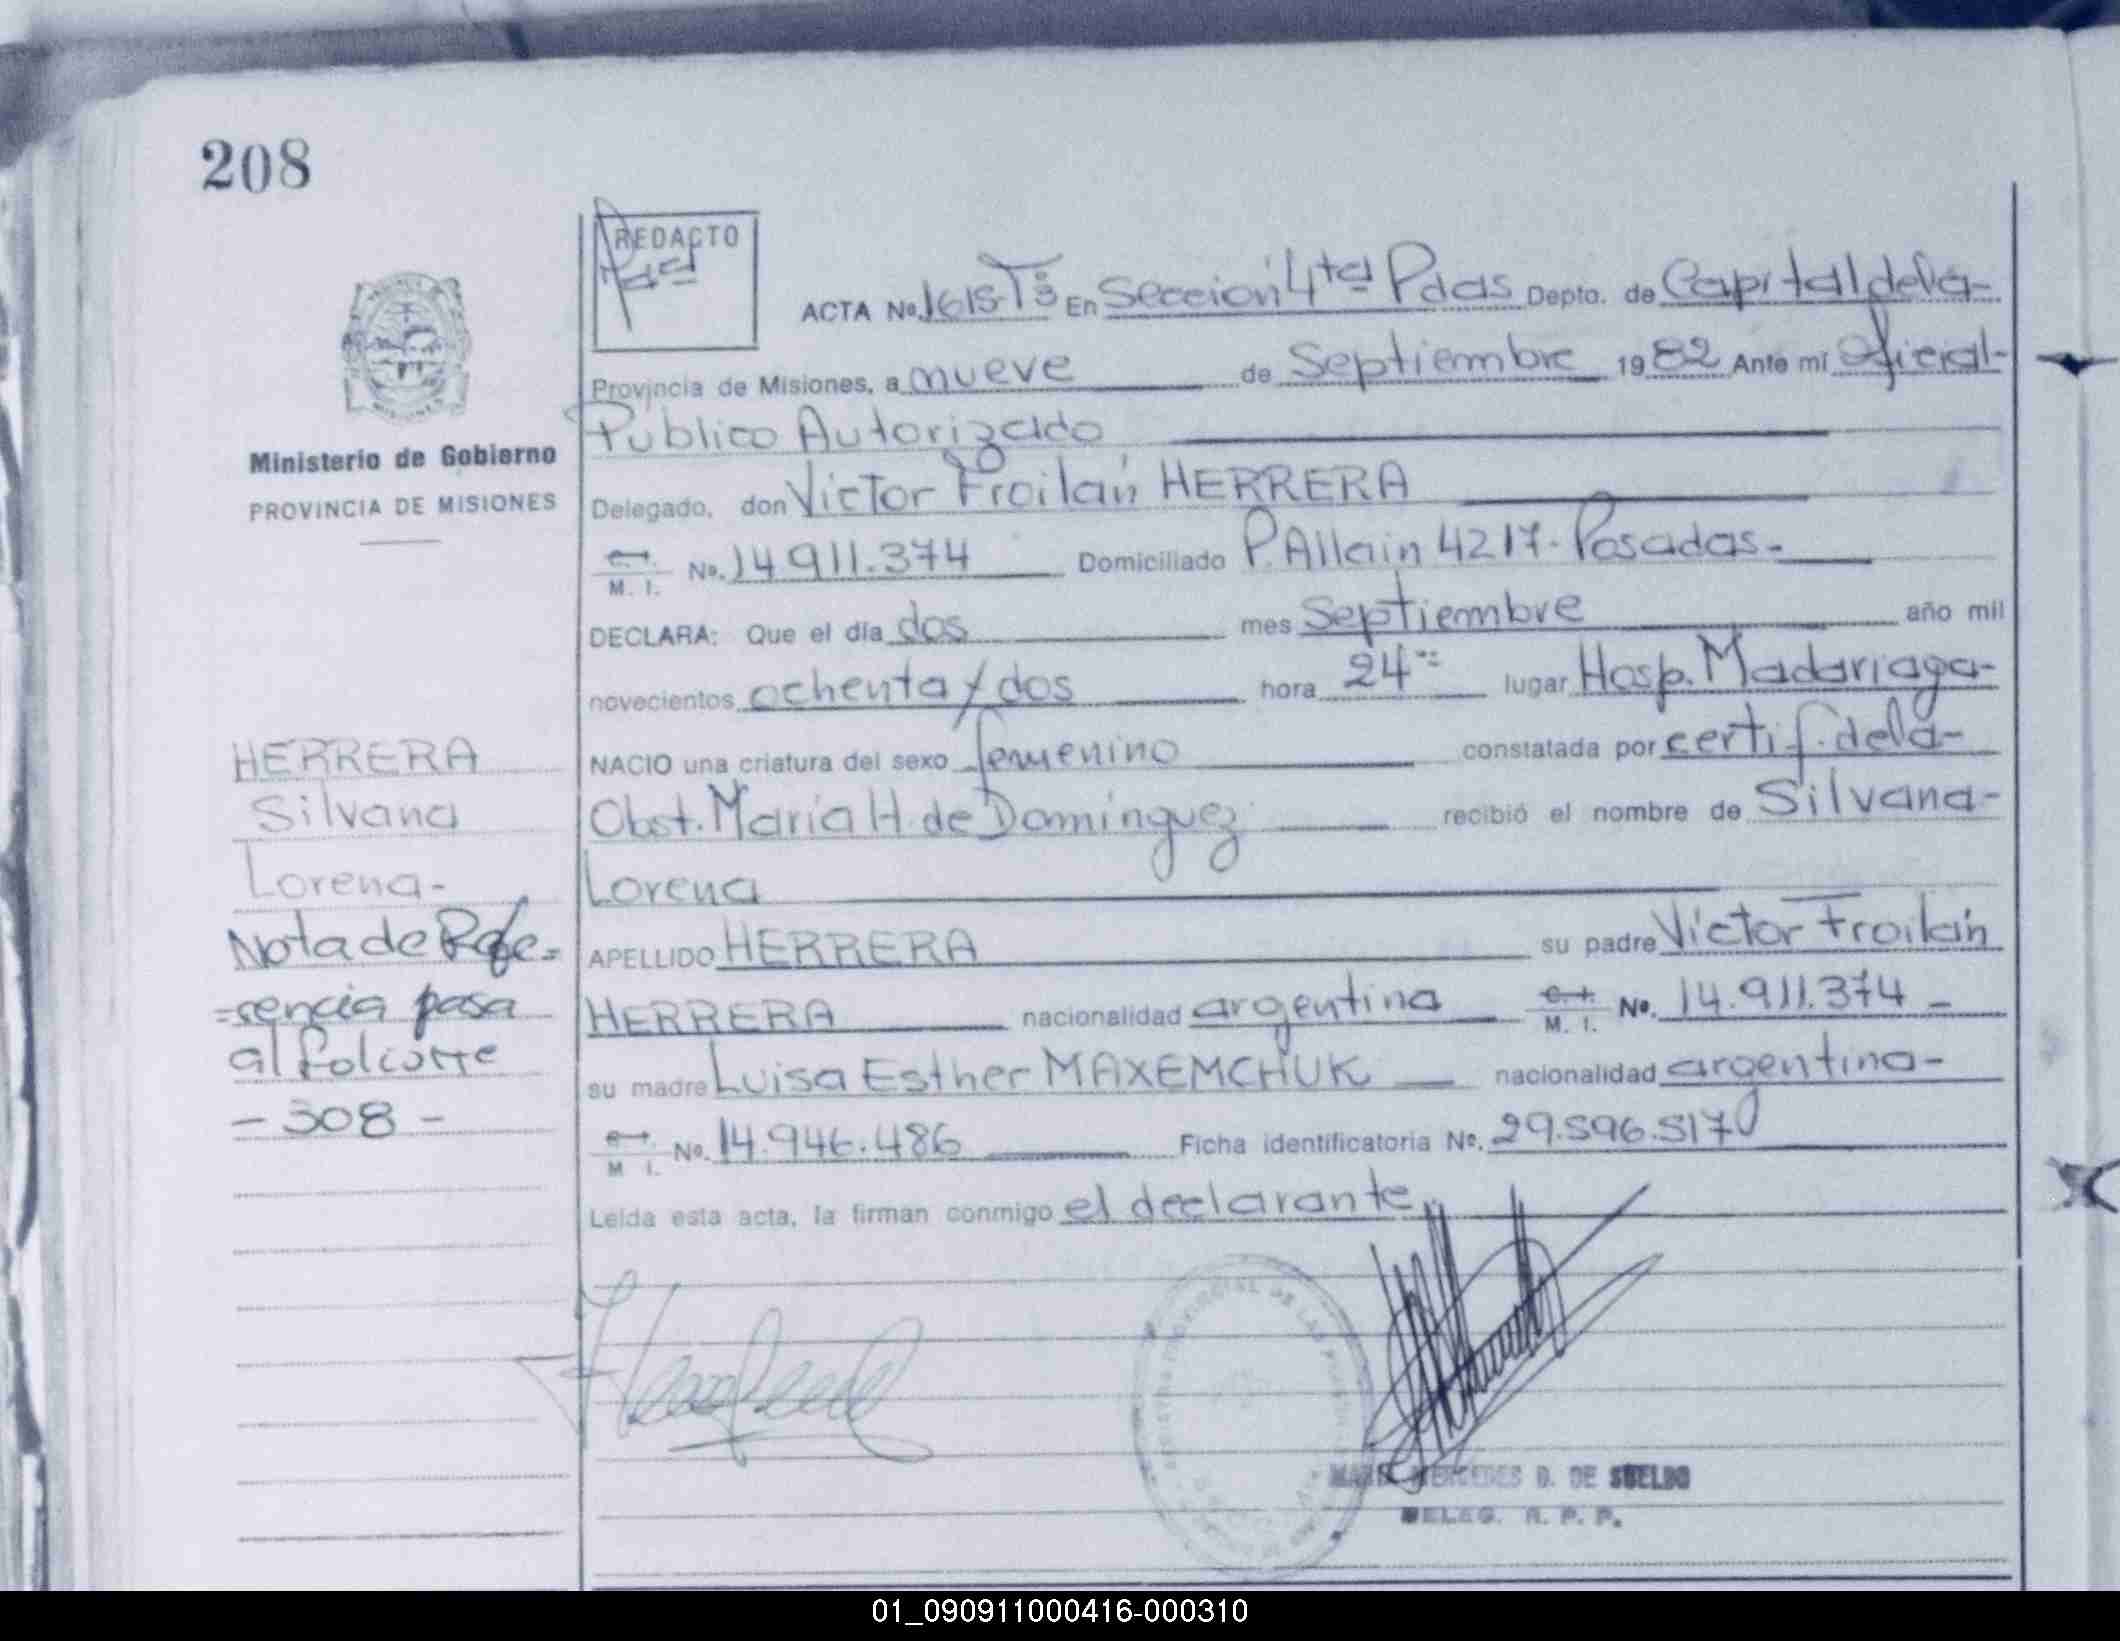 208
REDACTO
ACTA No. 1615-Tº3º En Sección 4ta Pdas Depto. de Capital de la-
Provincia de Misiones, a nueve de Septiembre 1982 Ante mí Oficial-
Publico Autorizado
Ministerio de Gobierno
PROVINCIA DE MISIONES
Delegado, don Victor Froilán HERRERA
M. I. No. 14.911.374 Domiciliado P. Allain 4217- Posadas-
DECLARA: Que el día dos mes Septiembre año mil
novecientos ochenta y dos hora 24 lugar Hosp. Madariaga-
NACIO una criatura del sexo femenino constatada por certif. de la-
Obst. María H. de Domínguez recibió el nombre de Silvana-
Lorena
APELLIDO HERRERA su padre Victor Froilán
HERRERA nacionalidad argentina M. I. No. 14.911.374-
su madre Luisa Esther MAXEMCHUK nacionalidad argentina-
M I. No. 14.946.486 Ficha identificatoria No. 29.596.517
Leída esta acta, la firman conmigo el declarante
HERRERA
Silvana
Lorena-
Nota de Refe=
=rencia pasa
al folio Nº
- 308 -
MERCEDES D. DE SUELDO
DELEG. R. P. P.
01_090911000416-000310